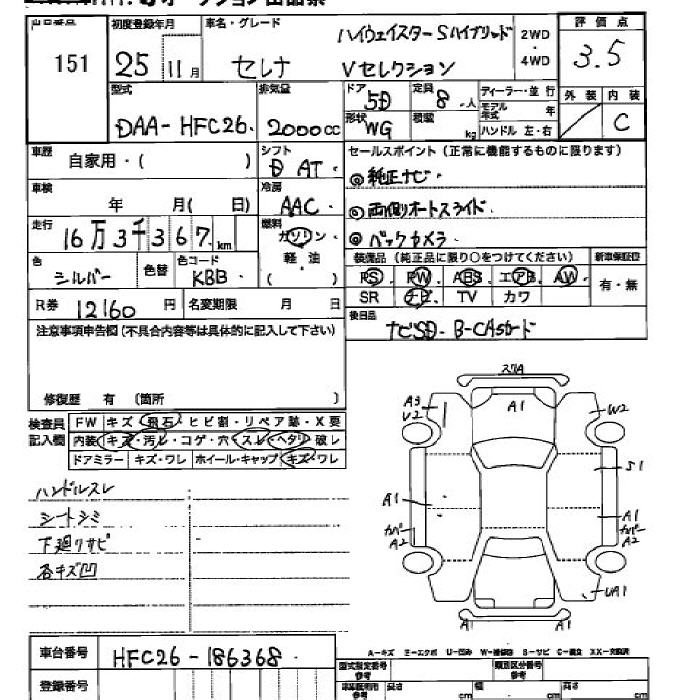 出品番号 初度登録年月 車名・グレード ハイウェイスターSハイブリッド 2WD・4WD 評価点
151 25年 11月 セレナ Vセレクション 3.5
型式 排気量 ドア 5D 定員 8人 ディーラー・並行 外装 内装
DAA-HFC26. 2000cc 形状 WG 積載 kg モデル年式 年 ハンドル 左・右 C
車歴 自家用・( ) シフト D AT セールスポイント(正常に機能するものに限ります)
◎純正ナビ
車検 年 月( 日) 冷房 AAC ◎両側オートスライド
走行 16万3千367km 燃料 ガソリン ◎バックカメラ
軽・油 ( ) 装備品(純正品に限り○をつけてください) 新車保証書
色 シルバー 色替 色コード KBB PS PW ABS エアB AW 有・無
R券 12160円 名変期限 月 日 SR ナビ TV カワ
注意事項申告欄(不具合内容等は具体的に記入して下さい) 後日品
ナビSD・B-CASカード
修復歴 有 (箇所 )
検査員記入欄 FW キズ・飛石・ヒビ割・リペア跡・X要
内装 キズ・汚レ・コゲ・穴・スレ・ヘタリ・破レ
ドアミラー キズ・ワレ ホイール・キャップ キズ・ワレ
ハンドルスレ
シートシミ
下廻りサビ
各キズ凹
スリA
A3
V2
A1
W2
S1
A1
カバー
A2
A1
カバー
A2
UA1
A1
A1
A-キズ E-エクボ U-凹み W-補修跡 B-サビ C-腐食 XX-交換済
車台番号 HFC26-186368. 型式指定番号 参考 類別区分番号 参考
登録番号 車検証用 参考 長さ cm 幅 cm 高さ cm